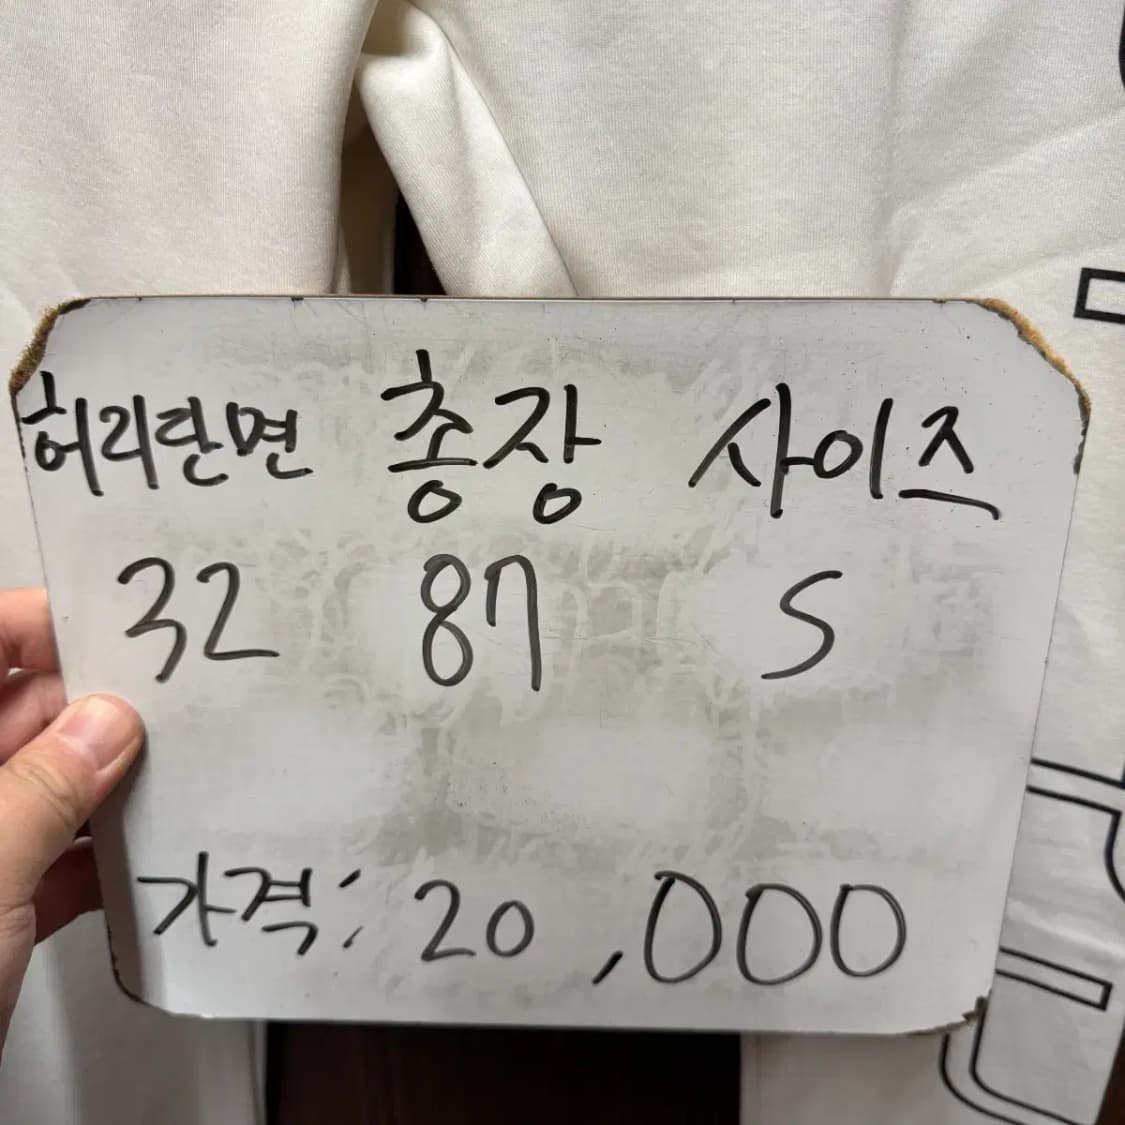 허리단면 총장 사이즈
32 87 S
가격: 20,000